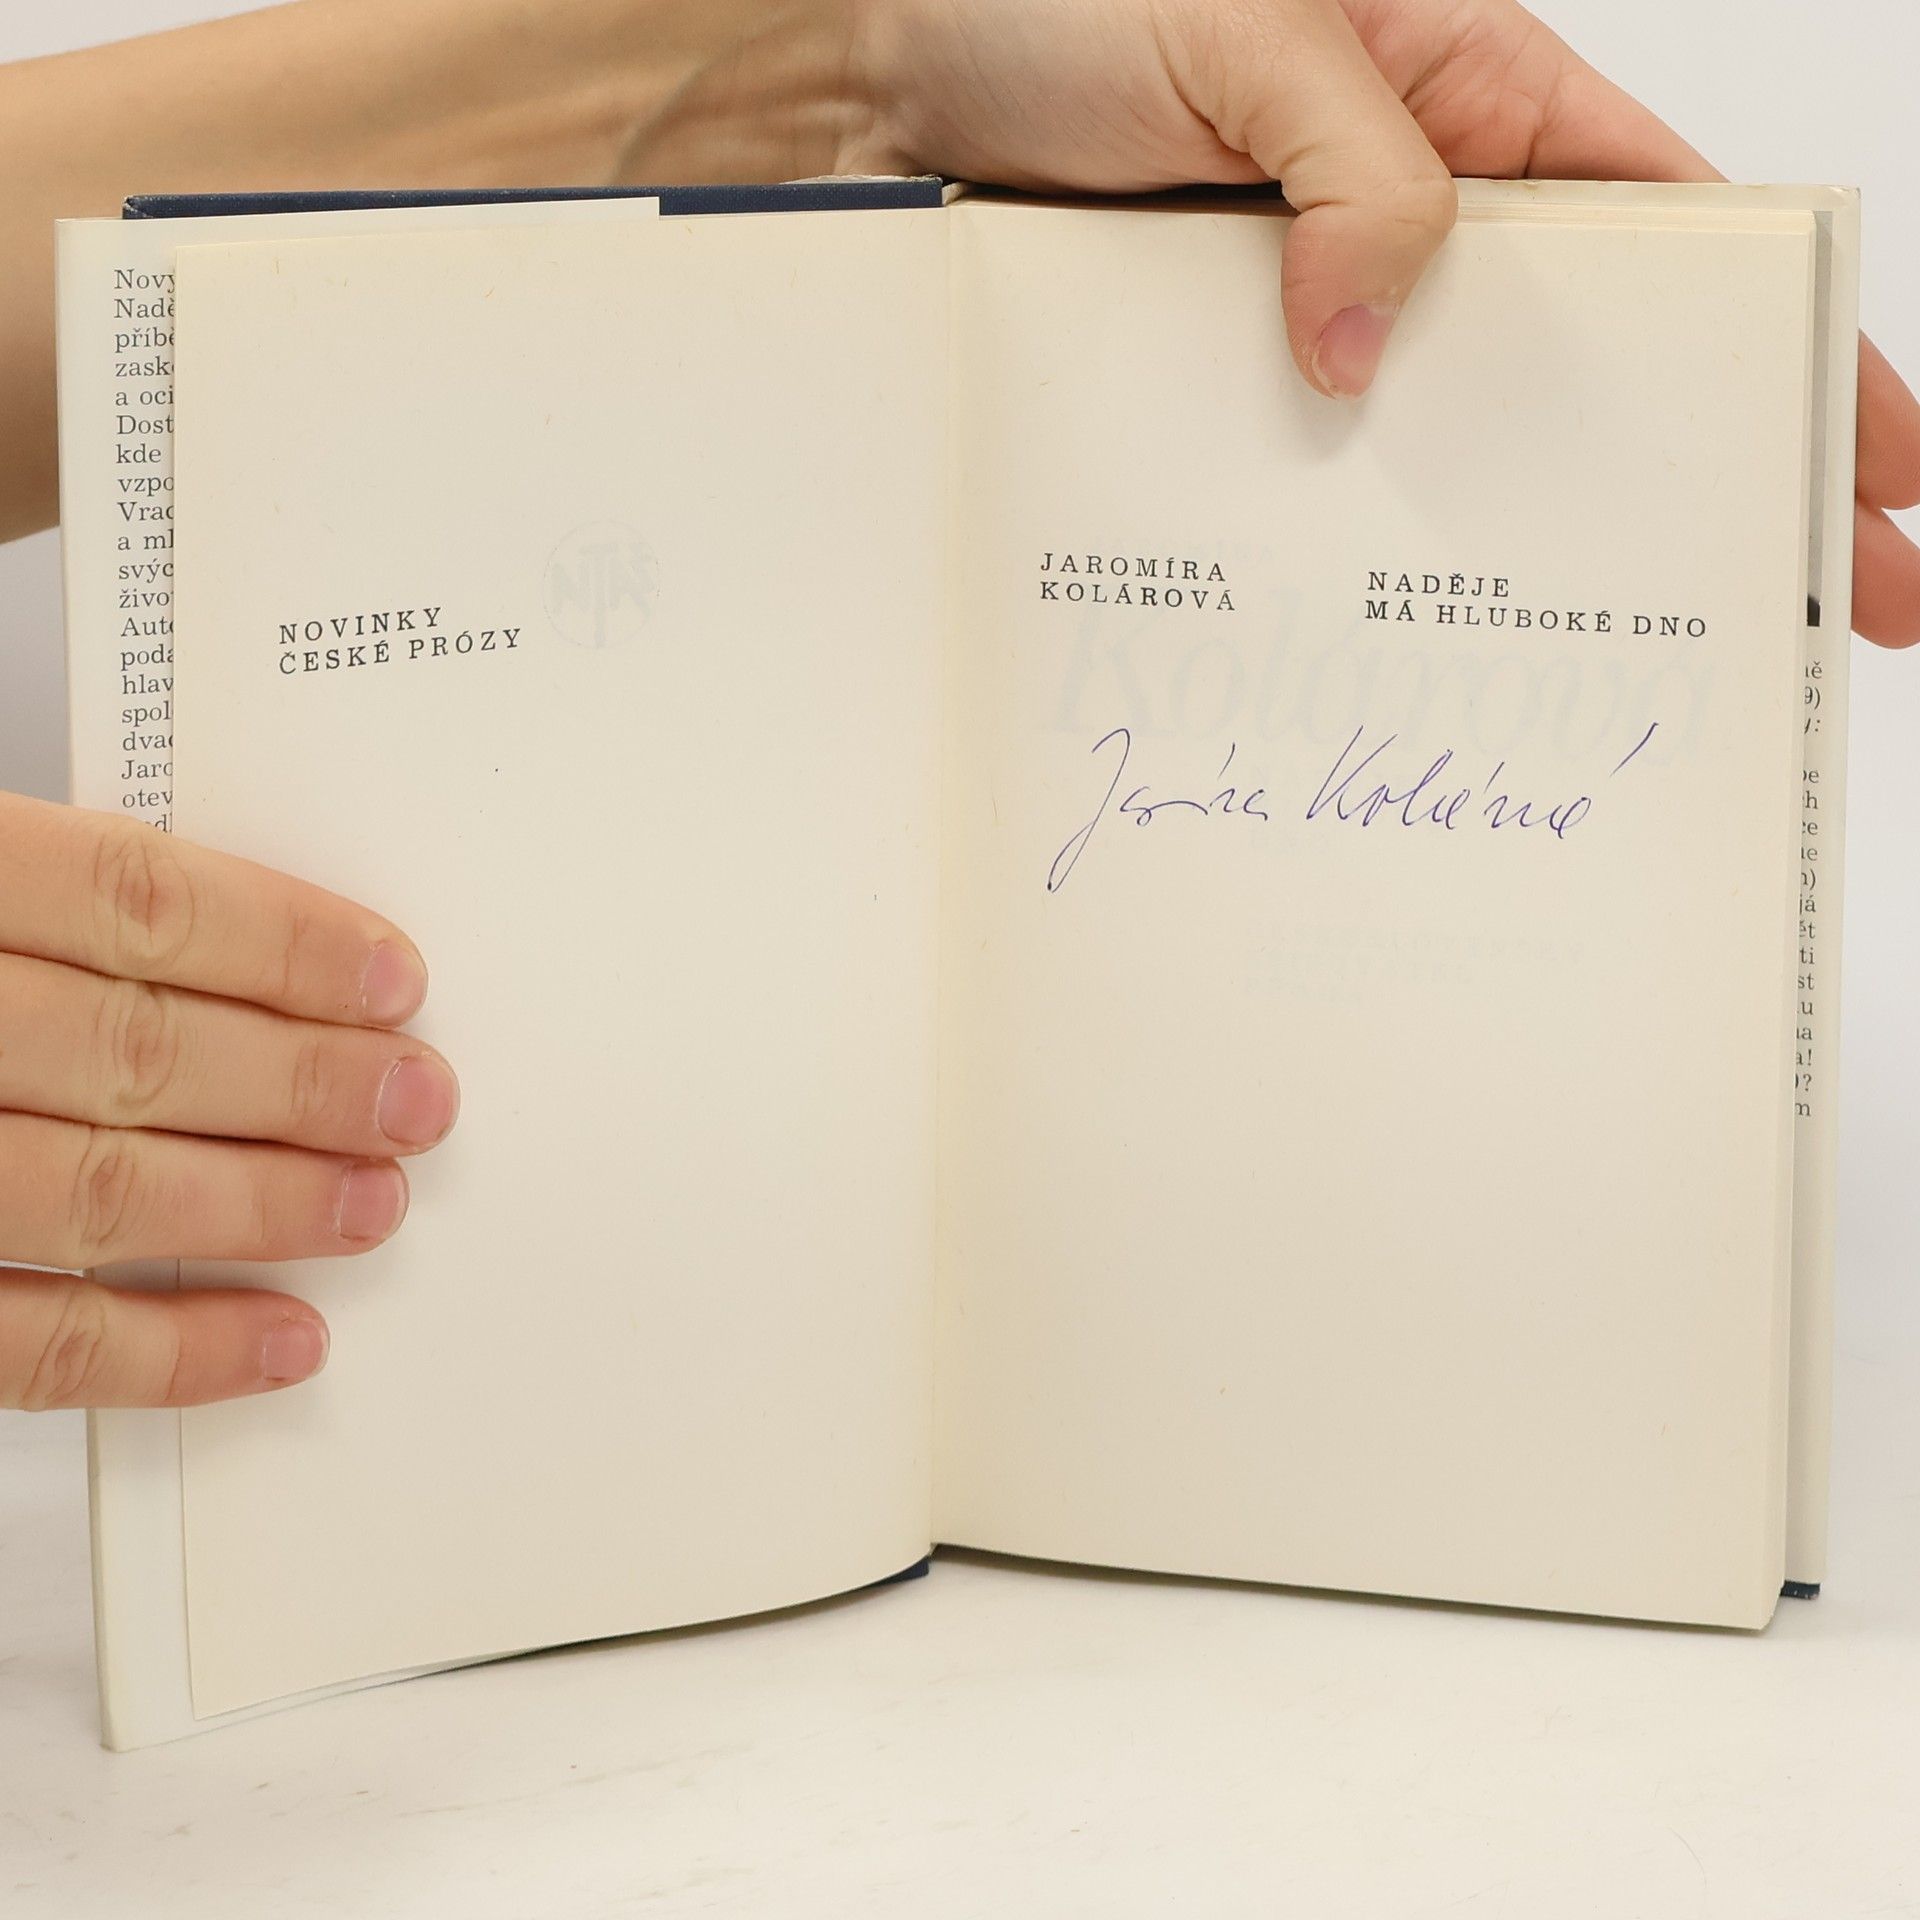 Nový
Nadě
příbě
zask
a oci
Dost
kde
vzpo
Vrac
a ml
svýc
živo
Auto
poda
hlav
spol
dvac
Jaro
otev
NOVINKY
ČESKÉ PRÓZY
JAROMÍRA
KOLÁROVÁ
NADĚJE
MÁ HLUBOKÉ DNO
Kolárová
ě
9)
y:
be
h
ce
ne
n)
já
ět
ti
st
u
na
a!
)?
m